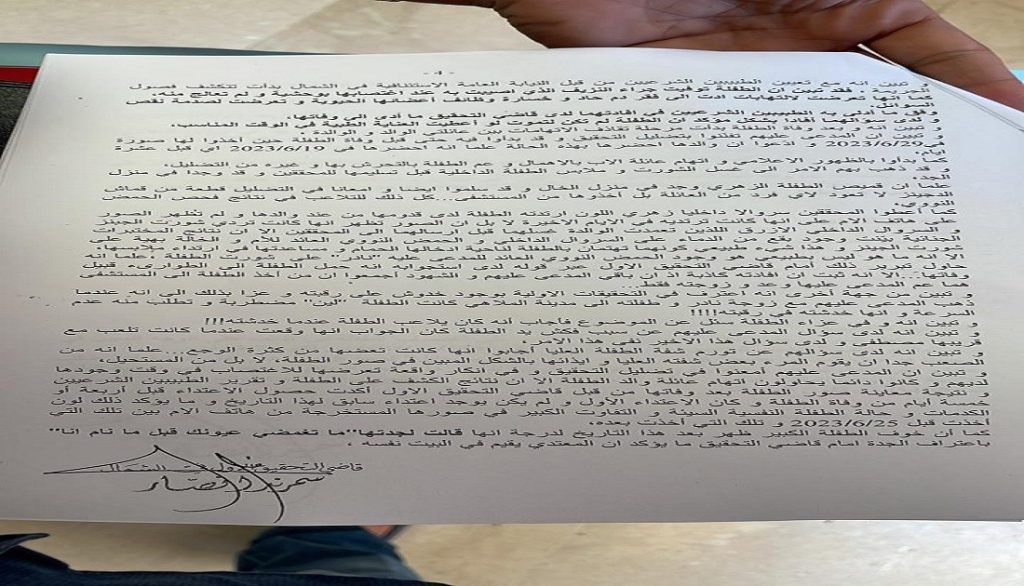 -4-
و تبين انه مع تعيين الطبيبين الشرعيين من قبل النيابة العامة الاستئنافية في الشمال بدأت تتكشف فصول
الجريمة، فقد تبين ان الطفلة توفيت جراء النزيف الذي اصيبت به عند اغتصابها بوحشية و لم تعالج منه،
كما انها تعرضت لالتهابات ادت الى فقر دم حاد و خسارة وظائف أعضائها الحيوية و تعرضت لصدمة نقص
السوائل.
وفق ما أدلي به الطبيبين الشرعيين في افادتهما لدى قاضي التحقيق ما أدى الى وفاتها.
و لدى سؤالهما أفادا بشكل مؤكد ان الطفلة لم تكن لتموت لو أعطيت العناية الطبية في الوقت المناسب.
و تبين انه و بعد وفاة الطفلة بدأت مرحلة تقاذف الاتهامات بين عائلتي الوالد و الوالدة.
و تبين ان المدعى عليهم تعمدوا تضليل التحقيق و قد بدأوا فيه حتى قبل وفاة الطفلة حين أخذوا لها صورة
في 2023/6/29 و ادعوا ان والدها احضرها بهذه الحالة علما انه احضرها في 2023/6/19 اي قبل عشرة
أيام.
كما بدأوا بالظهور الاعلامي و اتهام عائلة الاب بالاهمال و عم الطفلة بالتحرش بها و غيره من التضليل.
و قد ذهب بهم الامر الى غسل الشورت و ملابس الطفلة الداخلية قبل تسليمها للمحققين و قد وجدا في منزل
الجد.
علما ان قميص الطفلة الزهري وجد في منزل الخال و قد سلموا ايضا و امعانا في التضليل قطعة من قماش
الفوجيز لا تعود لاي فرد من العائلة بل أخذوها من المستشفى...كل ذلك للتلاعب في نتائج فحص الحمض
النووي.
كما أعطوا المحققين سروالا داخليا زهري اللون ارتدته الطفلة لدى قدومها من عند والدها و لم تظهر الصور
على هاتف الام على انها كانت ترتديه في الايام الاخيرة لا بل ان الصور تظهر انها كانت ترتدي شورت الجينز
و السروال الداخلي الازرق اللذين تعمدت الوالدة غسلهما قبل ارسالهما الى المحققين الا ان نتائج المختبرات
الجنائية بينت وجود بقع من الدماء على السروال الداخلي و الحمض النووي العائد للأم و الخالة بهية على
شورت الجينز و هذا شيء طبيعي كونهما تهتمان بالطفلة لناحية ادخالها الحمام و مساعدتها في ارتداء ملابسها،
الا انه ما هو ليس بطبيعي هو وجود الحمض النووي العائد للمدعى عليه "نادر" على شورت الطفلة، علما انه
حاول تبرير ذلك امام قاضي التحقيق الاول عبر قوله لدى استجوابه انه حمل الطفلة الى الطوارىء قبيل
وفاتها، الا انه ثبت ان افادته كاذبة اذ ان باقي المدعى عليهم و الشهود اجمعوا ان من أخذ الطفلة الى المستشفى
هما عم المدعى عليها وعد و زوجته فقط...
و تبين من جهة أخرى انه اعترف في التحقيقات الاولية بوجود خدوش على رقبته و عزا بذلك الى انه عندما
ذهب المدعى عليهم مع زوجة نادر و طفلته الى مدينة الملاهي كانت الطفلة "لين" مضطربة و تطلب منه عدم
السرعة و انها خدشته في رقبته!!!!
و تبين انه و في عزاء الطفلة سئل عن الموضوع فأجاب أنه كان يلاعب الطفلة عندما خدشته!!!
و تبين انه لدى سؤال المدعى عليهم عن سبب فكش يد الطفلة كان الجواب انها وقعت عندما كانت تلعب مع
قريبها مصطفى و لدى سؤال هذا الأخير نفى هذا الامر.
و تبين انه لدى سؤالهم عن تورم شفة الطفلة العليا اجابوا انها كانت تعضها من كثرة الوجع...علما انه من
الصعب جدا ان يقوم المرء بعض شفته العليا و ايذائها بالشكل المبين في صور الطفلة، لا بل من المستحيل.
و تبين ان المدعى عليهم أمعنوا في تضليل التحقيق و في انكار واقعة تعرضها للاغتصاب في وقت وجودها
لديهم و كانوا دائما يحاولون اتهام عائلة والد الطفلة الا ان نتائج الكشف على الطفلة و تقرير الطبيبين الشرعيين
و نتيجة معاينة صور الطفلة بعد وفاتها من قبل قاضي التحقيق الاول أكدت حصول الاعتداء قبل أربعة او
خمسة أيام من وفاة الطفلة و كان الاعتداء الاول و لم يكن يوجد اعتداء سابق لهذا التاريخ و ما يؤكد ذلك لون
الكدمات و حالة الطفلة النفسية السيئة و التفاوت الكبير في صورها المستخرجة من هاتف الام بين تلك التي
أخذت قبل 2023/6/25 و تلك التي أخذت بعده.
كما أن خوف الطفلة الكبير ظهر بعد هذا التاريخ لدرجة انها قالت لجدتها"ما تغمضي عيونك قبل ما نام انا"
باعتراف الجدة أمام قاضي التحقيق ما يؤكد ان المعتدي يقيم في البيت نفسه .
قاضي التحقيق الاول في الشمال
سمرندا نصار